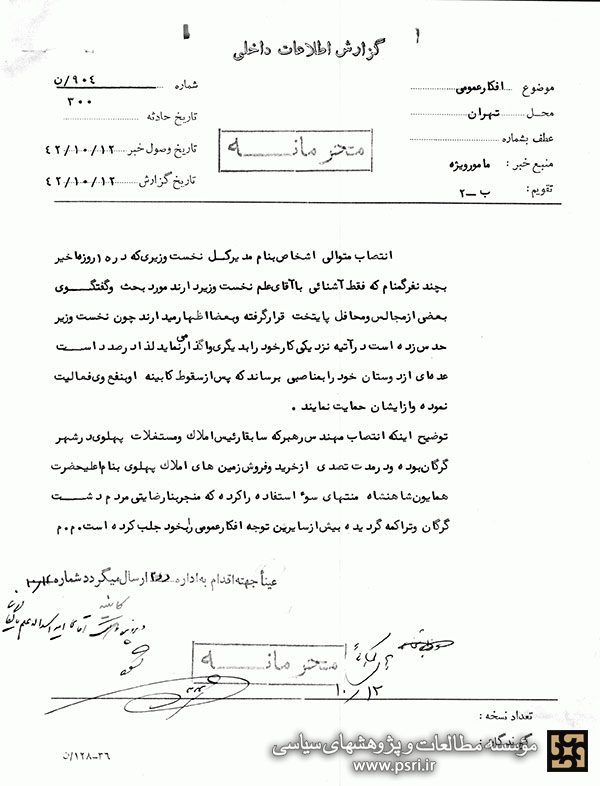 گزارش اطلاعات داخلی
موضوع افکارعمومی
محل تهران
عطف بشماره
منبع خبر : مامورویژه
تقویم : ب-۲
شماره ۹۰۴/ن
۳۰۰
تاریخ حادثه
تاریخ وصول خبر ۴۲/۱۰/۱۲
تاریخ گزارش ۴۲/۱۰/۱۲
محرمانه
انتصاب متوالی اشخاص بنام مدیرکل نخست وزیری که در ۱۵ روزه اخیر
بچند نفرگمنام که فقط آشنائی با آقای علم نخست وزیر دارند مورد بحث وگفتگوی
بعضی ازمجالس ومحافل پایتخت قرارگرفته وبعضا اظهارمیدارند چون نخست وزیر
حدس زده است درآتیه نزدیکی کارخود را بدیگری واگذارمی نماید لذا درصدد است
عده‌ای ازدوستان خود را بمناصبی برساند که پس ازسقوط کابینه او بنفع وی فعالیت
نموده وازایشان حمایت نمایند .
توضیح اینکه انتصاب مهندس رهبرکه سابقا رئیس املاک ومستغلات پهلوی درشهر
گرگان بوده ودرمدت تصدی ازخرید وفروش زمین های املاک پهلوی بنام اعلیحضرت
همایون شاهنشاه منتهای سوء استفاده را کرده که منجربنارضایتی مردم دشت
گرگان وتراکمه گردیده بیش ازسایرین توجه افکارعمومی را بخود جلب کرده است.م.م
عیناً جهته اقدام به اداره ارسال میگردد شماره
محرمانه
۱۰/۱۲
تعداد نسخه :
گیرندگان :
۱۲۸-۳۶/ن
موسسه مطالعات و پژوهشهای سیاسی
www.psri.ir